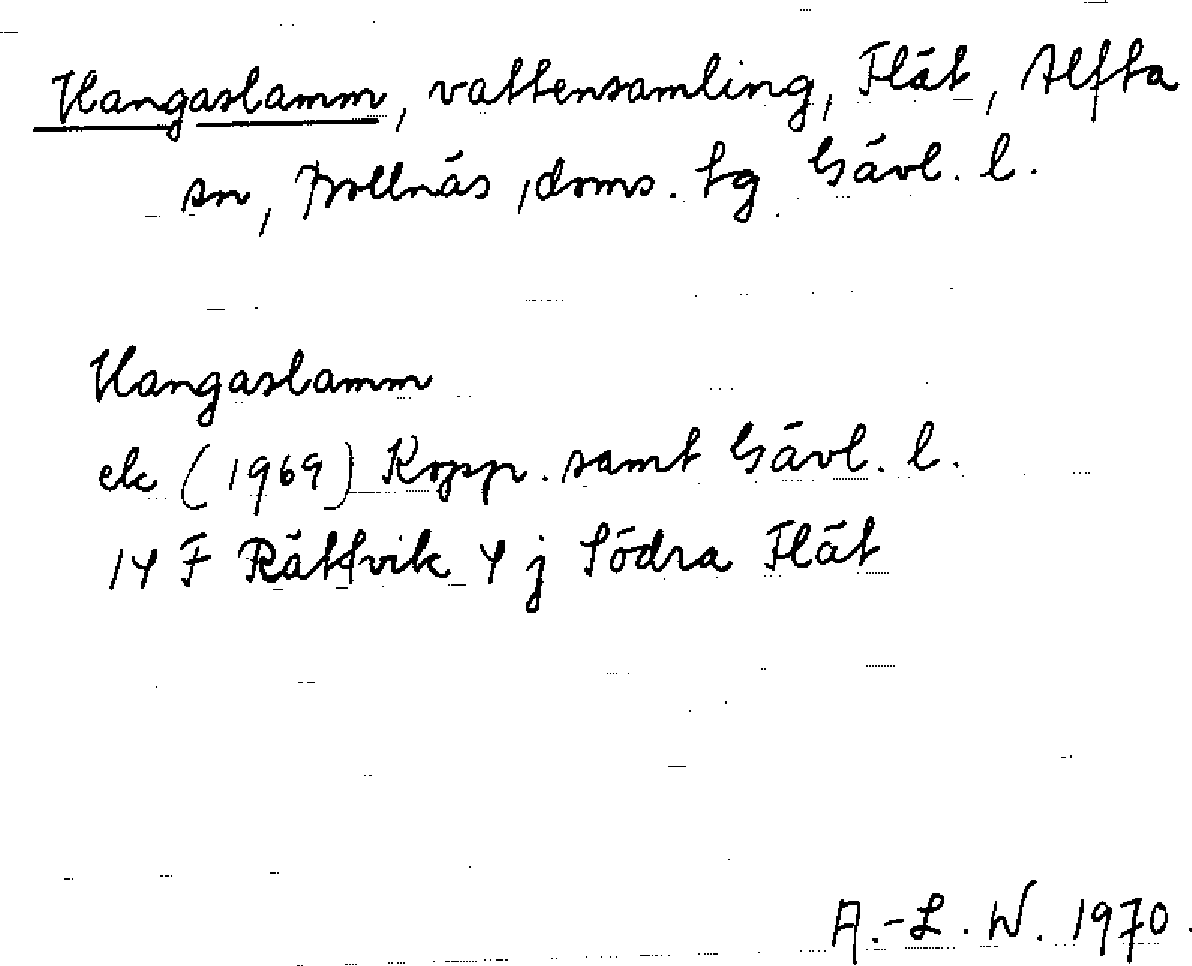 Hangaslamm, vattensamling, Flät, Alfta
sn, Bollnäs doms. tg Gävl. l.
Hangaslamm
ek (1969) Kopp. samt Gävl. l.
14 F Rättvik 4 j Södra Flät
A.-L. W. 1970.